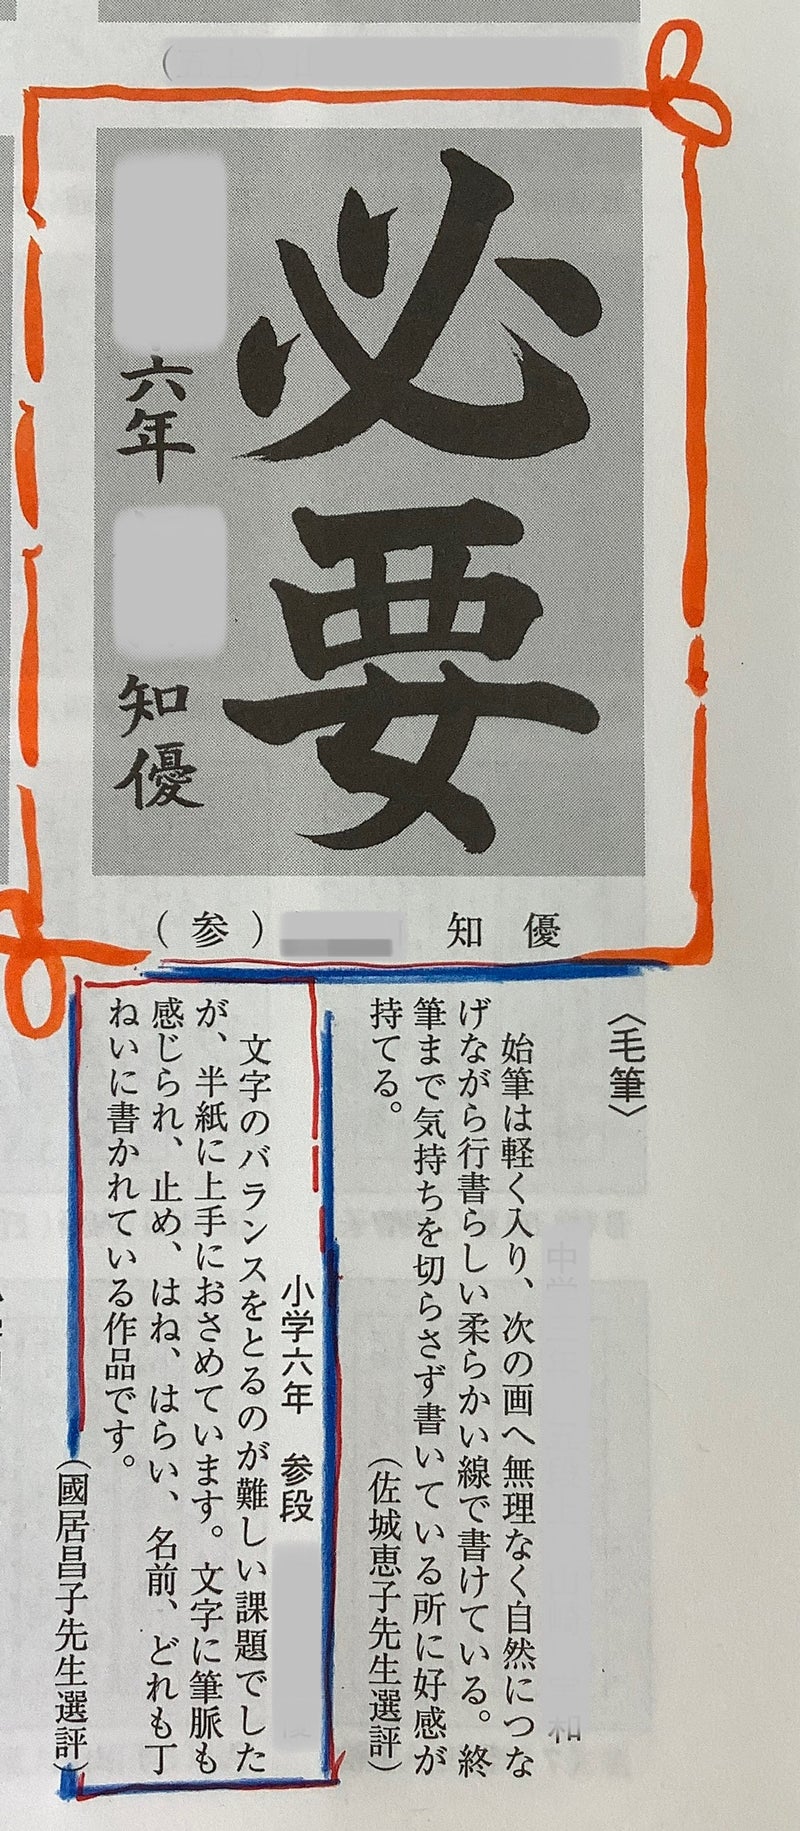 必要
六年
知優
(参) 知優
〈毛筆〉
始筆は軽く入り、次の画へ無理なく自然につな
げながら行書らしい柔らかい線で書けている。終
筆まで気持ちを切らさず書いている所に好感が
持てる。
(佐城恵子先生選評)
小学六年 参段
文字のバランスをとるのが難しい課題でした
が、半紙に上手におさめています。文字に筆脈も
感じられ、止め、はね、はらい、名前、どれも丁
ねいに書かれている作品です。
(國居昌子先生選評)